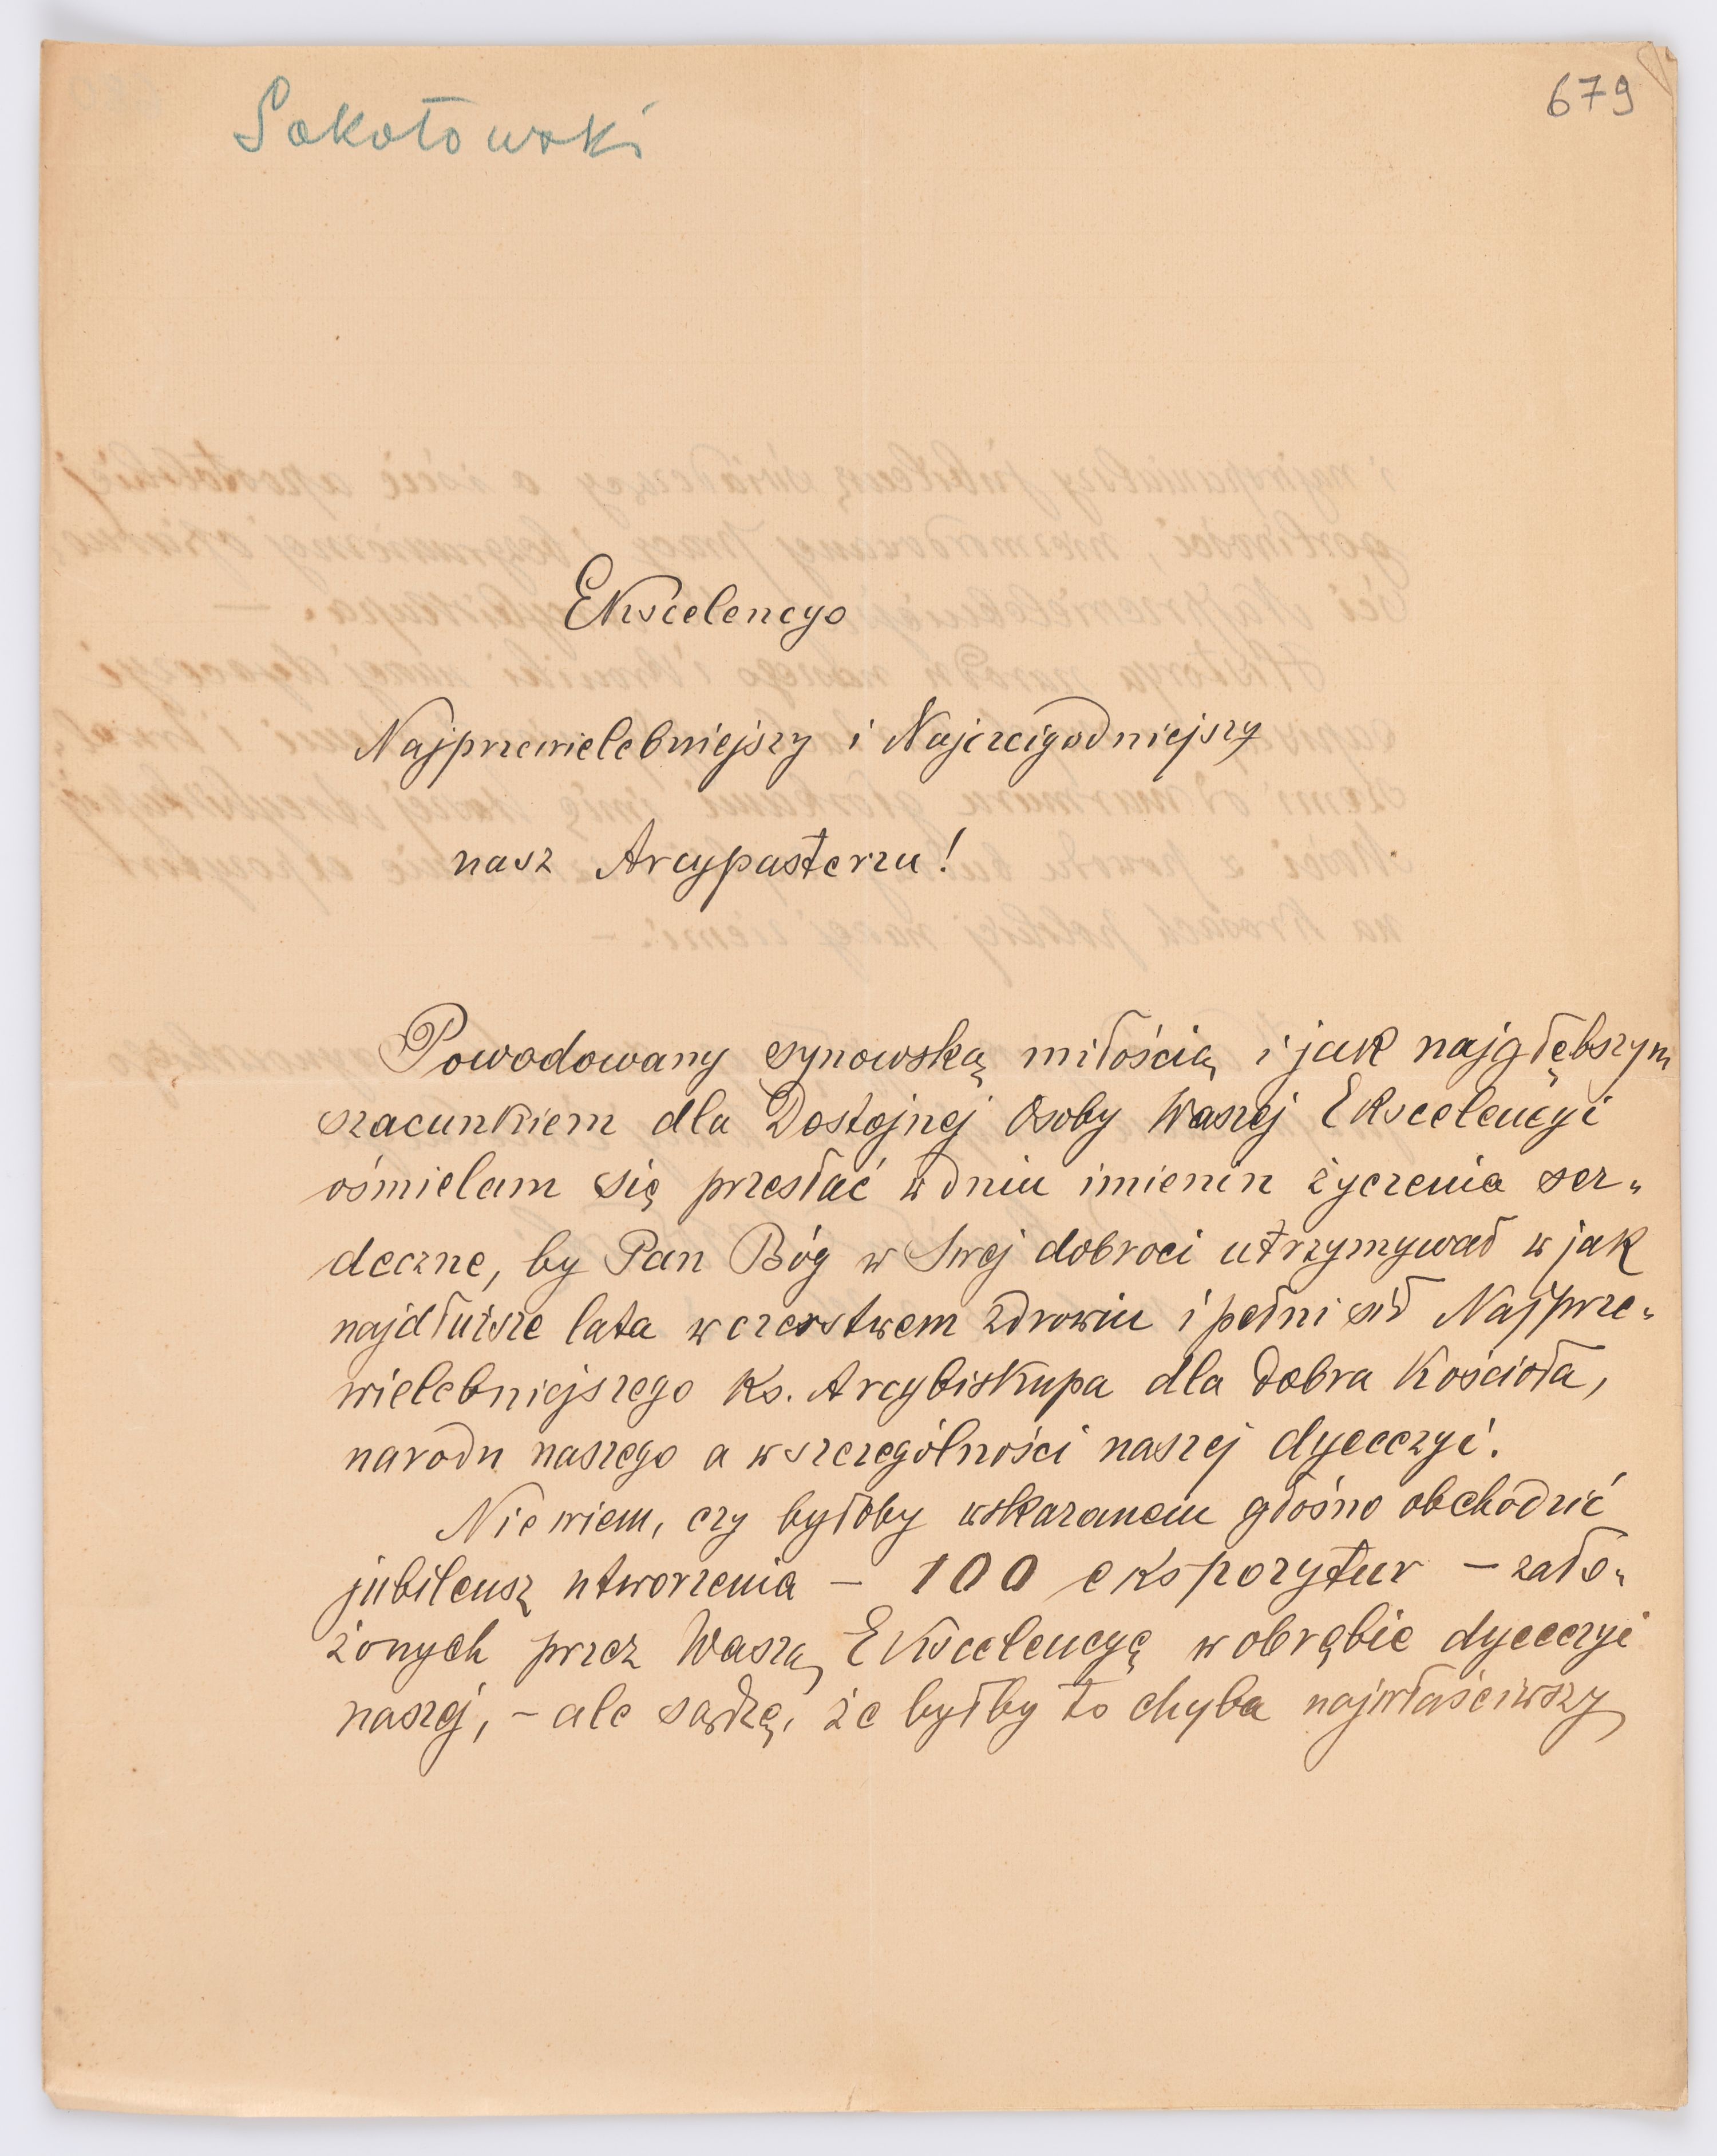 Sokołowski
679
Ekscelencyo
Najprzewielebniejszy i Najczcigodniejszy
nasz Arcypasterzu!
Powodowany synowską miłością i jak najgłębszym
szacunkiem dla Dostojnej Osoby Waszej Ekscelencyi
ośmielam się przesłać w dniu imienin życzenia ser„
deczne, by Pan Bóg w Swej dobroci utrzymywał w jak
najdłuższe lata w czerstwem zdrowiu i pełni sił Najprze„
wielebniejszego Ks. Arcybiskupa dla dobra Kościoła,
narodu naszego a w szczególności naszej dyecezyi.
Nie wiem, czy byłoby wskazanem głośno obchodzić
jubileusz utworzenia – 100 ekspozytur – zało„
żonych przez Waszą Ekscelencyę w obrębie dyecezyi
naszej, – ale sądzę, że byłby to chyba najwłaściwszy